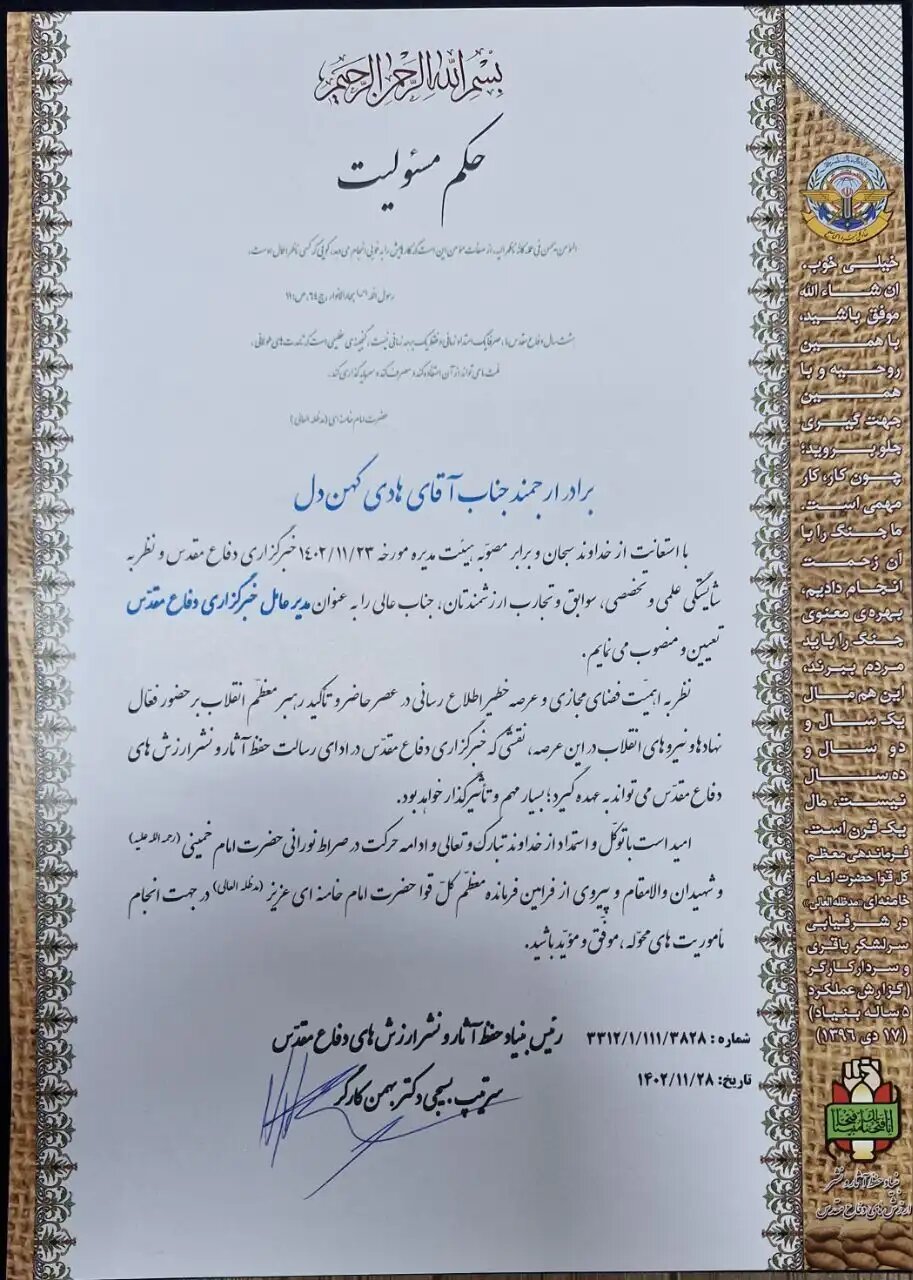 بسم الله الرحمن الرحیم
حکم مسئولیت
رسول الله (ص) بحارالانوار، ج ۶۴، ص: ۱۱
هشت سال دفاع مقدس ما، صرفا یک امتداد زمانی و فقط یک برهه زمانی نیست، گنجینه‌ی عظیمی است که تا مدت های طولانی،
ملت ما می تواند از آن استفاده کند، مصرف کند و سرمایه گذاری کند.
حضرت امام خامنه ای (مدظله العالی)
برادر ارجمند جناب آقای هادی کهن دل
با استعانت از خداوند سبحان و برابر مصوّبه هیئت مدیره مورخه ۱۴۰۲/۱۱/۲۳ خبرگزاری دفاع مقدس و نظر به
شایستگی علمی و تخصصی، سوابق و تجارب ارزشمندتان، جناب عالی را به عنوان مدیر عامل خبرگزاری دفاع مقدّس
تعیین و منصوب می نمایم.
نظر به اهمیّت فضای مجازی و عرصه خطیر اطلاع رسانی در عصر حاضر و تأکید رهبر معظّم انقلاب بر حضور فعّال
نهادها و نیروهای انقلاب در این عرصه، نقشی که خبرگزاری دفاع مقدّس در ادای رسالت حفظ آثار و نشر ارزش های
دفاع مقدّس می تواند به عهده گیرد؛ بسیار مهم و تأثیرگذار خواهد بود.
امید است با توکّل و استمداد از خداوند تبارک و تعالی و ادامه حرکت در صراط نورانی حضرت امام خمینی (رحمه الله علیه)
و شهیدان والامقام و پیروی از فرامین فرمانده معظّم کلّ قوا حضرت امام خامنه ای عزیز (مدظله العالی) در جهت انجام
مأموریت های محوّله، موفّق و مؤیّد باشید.
رئیس بنیاد حفظ آثار و نشر ارزش های دفاع مقدّس
سرتیپ بسیجی دکتر بهمن کارگر
شماره : ۳۳۱۲/۱/۱۱۱/۳۸۲۸
تاریخ: ۱۴۰۲/۱۱/۲۸
خیلی خوب،
ان شاء الله
موفق باشید،
با همین
روحیه و با
همین
جهت گیری
جلو بروید؛
چون کار، کار
مهمی است.
ما جنگ را با
آن زحمت
انجام دادیم،
بهره‌ی معنوی
جنگ را باید
مردم ببرند،
این هم مال
یک سال و
دو سال و
ده سال
نیست، مال
یک قرن است.
فرماندهی معظم
کل قوا حضرت امام
خامنه‌ای «مدظله العالی»
در شرفیابی
سرلشکر باقری
و سردار کارگر
(گزارش عملکرد
۵ ساله بنیاد)
(۱۷ دی ۱۳۹۶)
انا فتحنا لک فتحا مبینا
بنیاد حفظ آثار و نشر
ارزش های دفاع مقدس